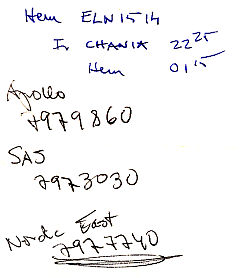 Hem ELN 1514
Ir CHANIA 22 25
Hem 01 15
Apollo
7979860
SAS
7973030
Nordic East
7977740